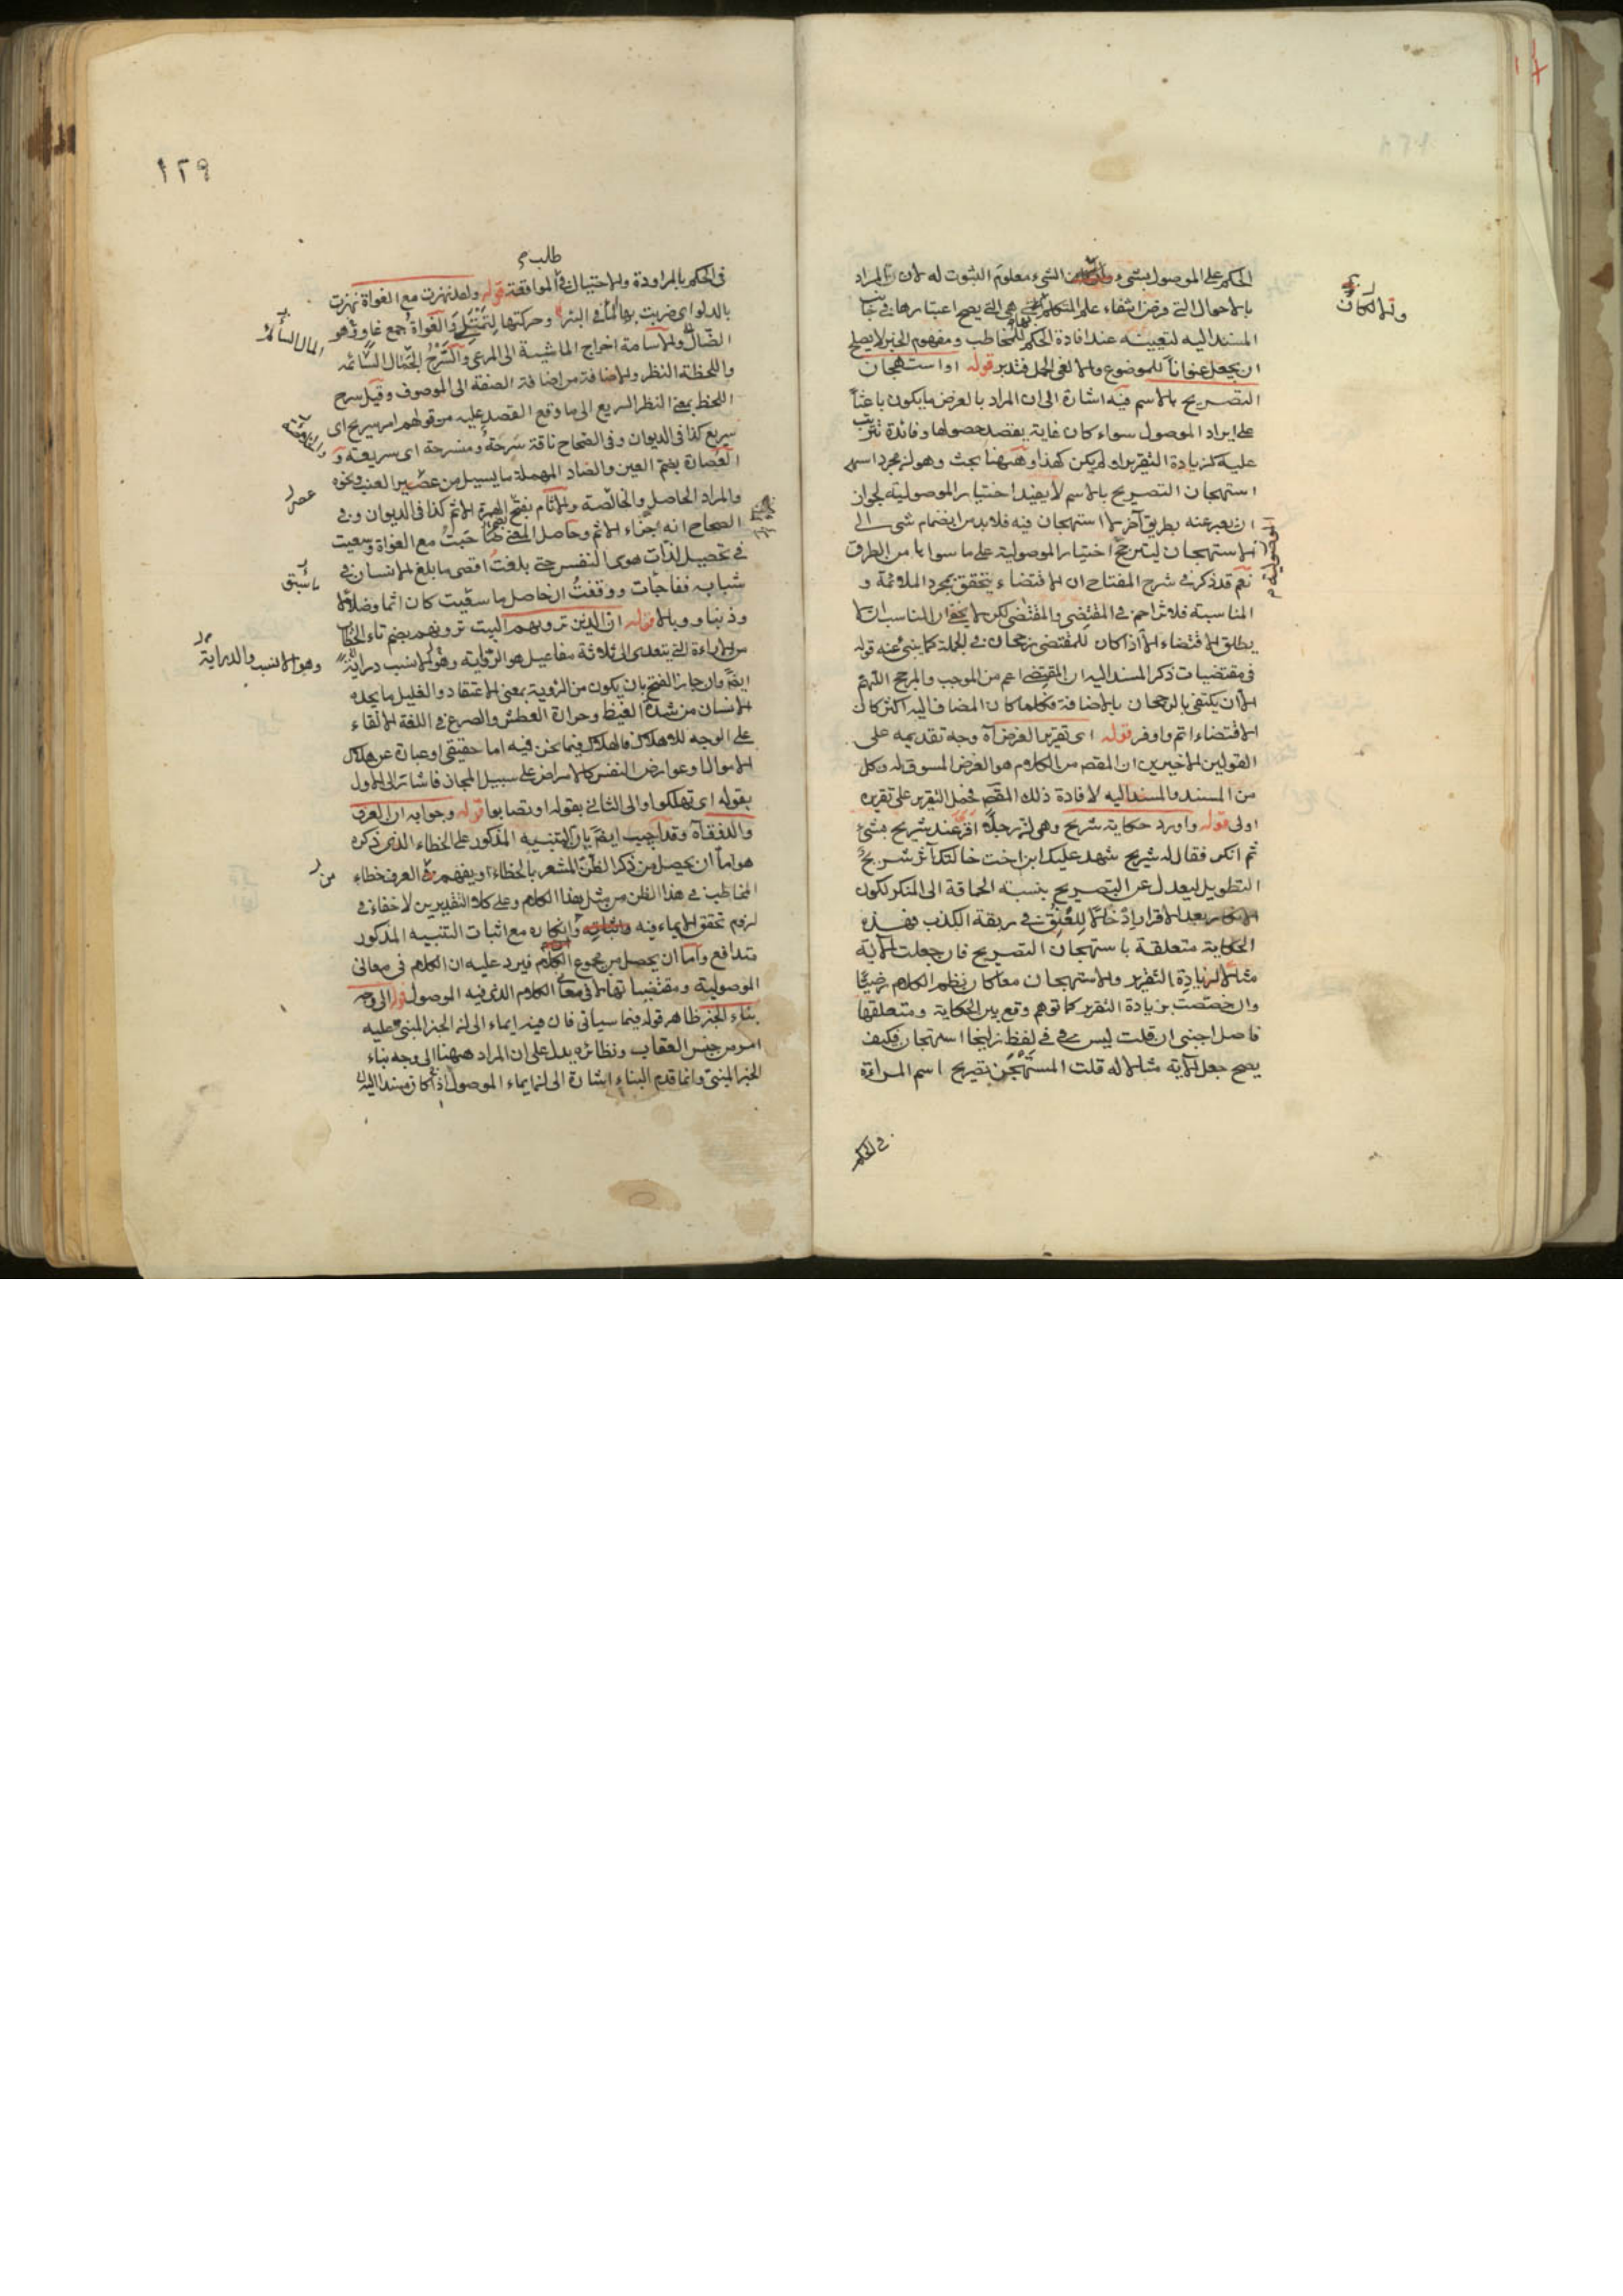 الحكم على الموصول بشئ و الشئ معلوم الثبوت له لان المراد
بالاحوال التى فرض انتفاء علم المتكلم هى التى يصح اعتبارها فى جانب
المسند اليه لتعيينه عند افادة الحكم للمخاطب ومفهوم الخبر لا يصلح
ان يجعل عنوانا للموضوع والا لغى الحمل فتدبر قوله او استهجان
التصريح بالاسم فيه اشارة الى ان المراد بالغرض ما يكون باعثا
على ايراد الموصول سواء كان غاية يقصد حصولها وفائدة تترتب
عليه كزيادة التقرير او لم يكن كهذا وههنا بحث وهو ان مجرد اسم
استهجان التصريح بالاسم لا يفيد اختيار الموصولية لجواز
ان يعبر عنه بطريق آخر لا استهجان فيه فلا بد من انضمام شئ الى
الاستهجان ليترجح اختيار الموصولية على ما سواها من الطرق
نعم قد ذكر فى شرح المفتاح ان الاقتضاء يتحقق بمجرد الملائمة و
المناسبة فلا تزاحم فى المقتضِى والمقتضَى لكن لا يخفى ان المناسب انما
يطلق الاقتضاء الا اذا كان للمقتضى رجحان فى الجملة كما ينبئ عنه قوله
فى مقتضيات ذكر المسند اليه ان المقتضى اعم من الموجب والمرجح اللهم
الا ان يكتفى بالرجحان بالاضافة فكلما كان المضاف اليه اكثر كان
الاقتضاء اتم واوفر قوله اى تقرير الغرض آه وجه تقديمه على
القولين الاخيرين ان المقص من الكلام هو الغرض المسوق له وكل
من المسند والمسند اليه لافادة ذلك المقص فحمل التقرير على تقريره
اولى قوله واورد حكاية شريح وهى ان رجلا اقر عند شريح بشئ
ثم انكر فقال له شريح شهد عليك ابن اخت خالتك آثر شريح
التطويل ليعدل عن التصريح بنسبة الحماقة الى المنكر لكون
الانكار بعد الاقرار ادخالا للعنق فى ربقة الكذب فهذه
الحكاية متعلقة باستهجان التصريح فان جعلت الآية
مثالا لزيادة التقرير والاستهجان معا كان نظم الكلام مرضيا
وان خصصت بزيادة التقرير كما توهم وقع بين الحكاية ومتعلقها
فاصل اجنبى ان قلت ليس فى لفظ زليخا استهجان فكيف
يصح جعل الآية مثالا له قلت المستهجن تصريح اسم المراءة
فى الحكم
ولما كان
الموصولية
١٢٩
طلب
فى الحكم بالمراودة والاحتيال فى الموافقة قوله ولقد نهزت مع الغواة نهزت
بالدلو اى ضربت بها الماء فى البئر وحركتها لتمتلئ والغواة جمع غاو وهو
الضال والاسامة اخراج الماشية الى المرعى والسرح المال السائمة
واللحظة النظر والاضافة من اضافة الصفة الى الموصوف وقيل سرح
اللحظ بمعنى النظر السريع الى ما وقع القصد عليه من قولهم امر سريح اى
سريع كذا فى الديوان وفى الصحاح ناقة سرحة ومنسرحة اى سريعة و
العصارة بضم العين والصاد المهملة ما يسيل من عصير العنب ونحوه
والمراد الحاصل والخالصة والاثام بفتح الهمزة الاثم كذا فى الديوان وفى
الصحاح انه جزاء الاثم وحاصل المعنى خبت مع الغواة وسعيت
فى تحصيل لذات هوى النفس حتى بلغت اقصى ما بلغ الانسان فى
شبابه ففاجأت ووقفت ان حاصل ما سقيت كان اثما وضلالا
وذنبا ووبالا قوله ان الذين ترونهم البيت ترونهم بضم تاء الخطاب
من الاراءة التى يتعدى الى ثلاثة مفاعيل هو الرواية وهو الانسب دراية
ايضا وان جاز الفتح بان يكون من الرؤية بمعنى الاعتقاد والغليل ما يجده
الانسان من شدة الغيظ وحرارة العطش والصرع فى اللغة الالقاء
على الوجه للاهلاك فالهلاك فيما نحن فيه اما حقيقى او عبارة عن هلاك
الاموال وعوارض النفس كالامراض على سبيل المجاز فاشار الى الاول
بقوله اى تهلكوا والى الثانى بقوله او تصابوا قوله وجوابه ان العرف
والذوق آه وقد اجيب ايضا بان التنبيه المذكور على الخطاء الذى ذكره
هو اما ان يحصل من ذكر الظن المشعر بالخطاء او يفهم فى العرف خطاء
المخاطب فى هذا الظن من مثل هذا الكلام وعلى كلا التقديرين لا خفاء فى
لزوم تحقق الايماء فيه وانكاره مع اثبات التنبيه المذكور
متدافع واما ان يحصل من مجموع الكلام فيرد عليه ان الكلام فى معانى
الموصولية ومقتضياتها لا فى معانى الكلام الذى فيه الموصول قوله الى وجه
بناء الخبر ظاهر قوله فيما سيأتى فان فيه ايماء الى ان الخبر المبنى عليه
امر من جنس العقاب ونظائره يدل على ان المراد ههنا الى وجه بناء
الخبر المبنى وانما قدم البناء اشارة الى ان ايماء الموصول اذا كان مسند اليه
المال السائمة
عصر
ما سبق
وهو الانسب والدراية
من